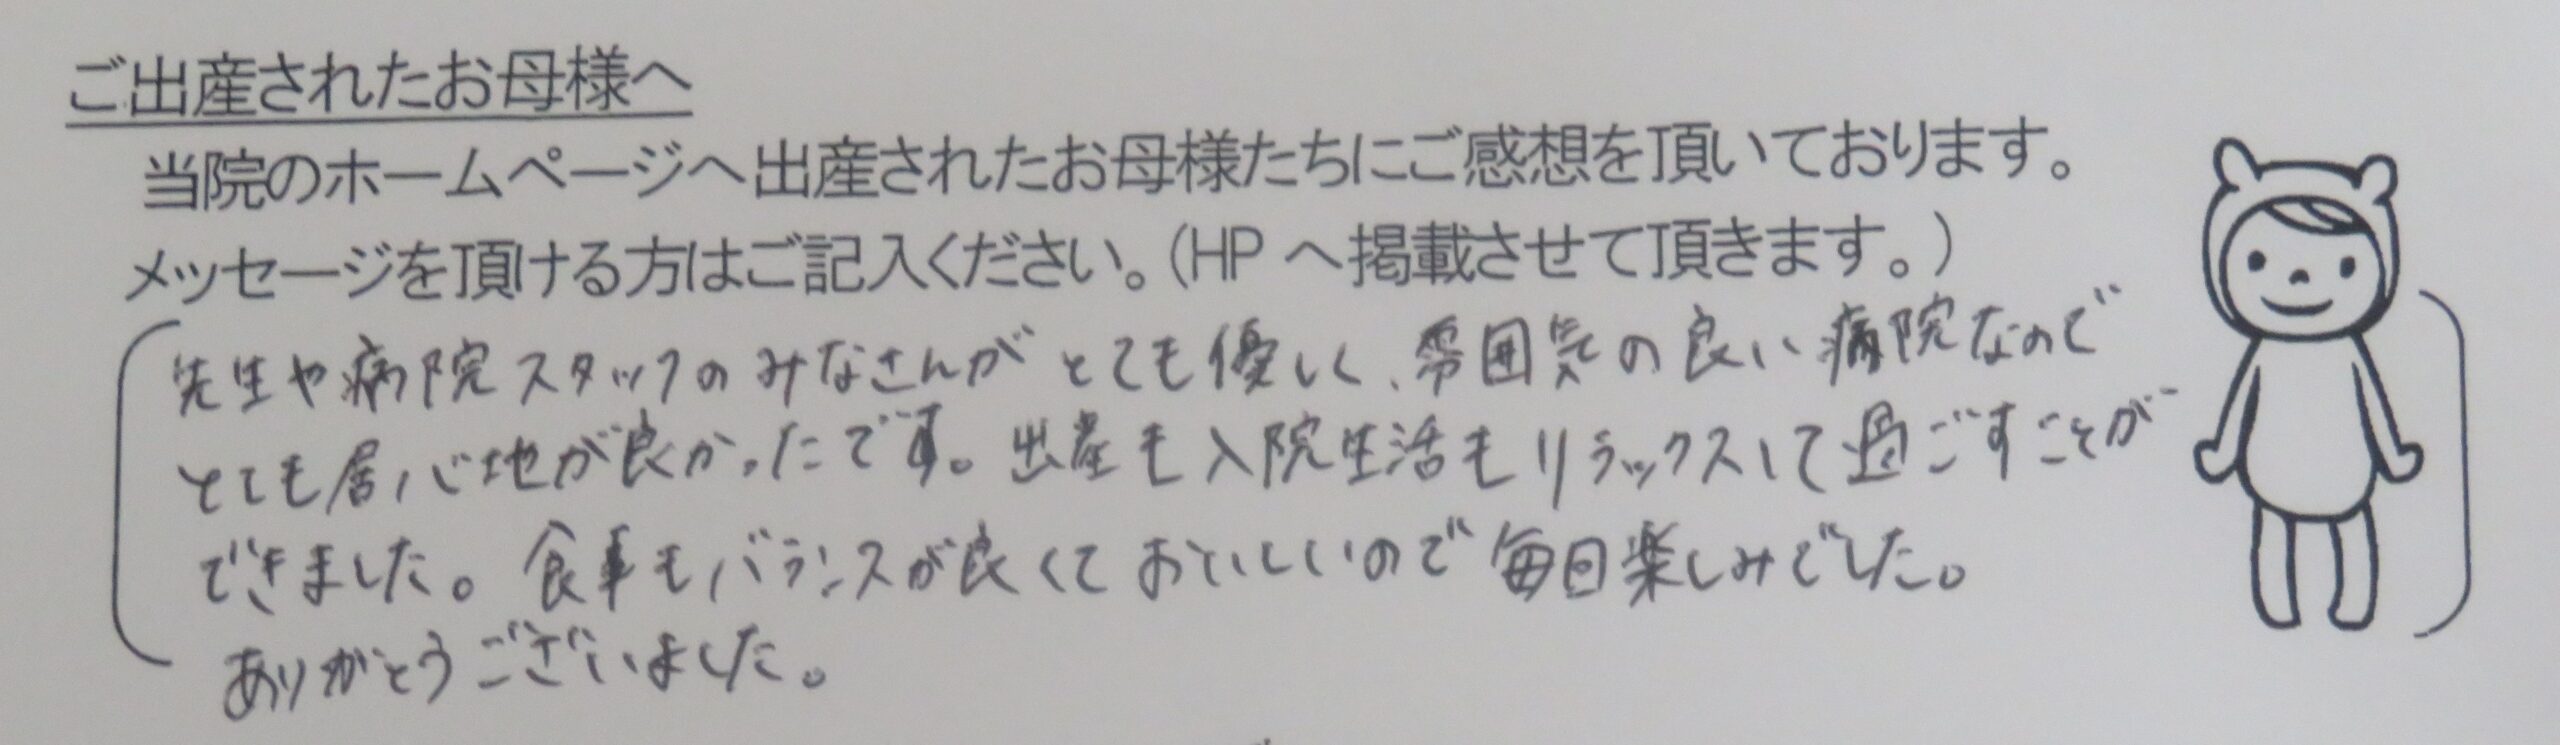 ご出産されたお母様へ
当院のホームページへ出産されたお母様たちにご感想を頂いております。
メッセージを頂ける方はご記入ください。(HP へ掲載させて頂きます。)
先生や病院スタッフのみなさんがとても優しく、雰囲気の良い病院なので
とても居心地が良かったです。出産も入院生活もリラックスして過ごすことが
できました。食事もバランスが良くておいしいので毎日楽しみでした。
ありがとうございました。